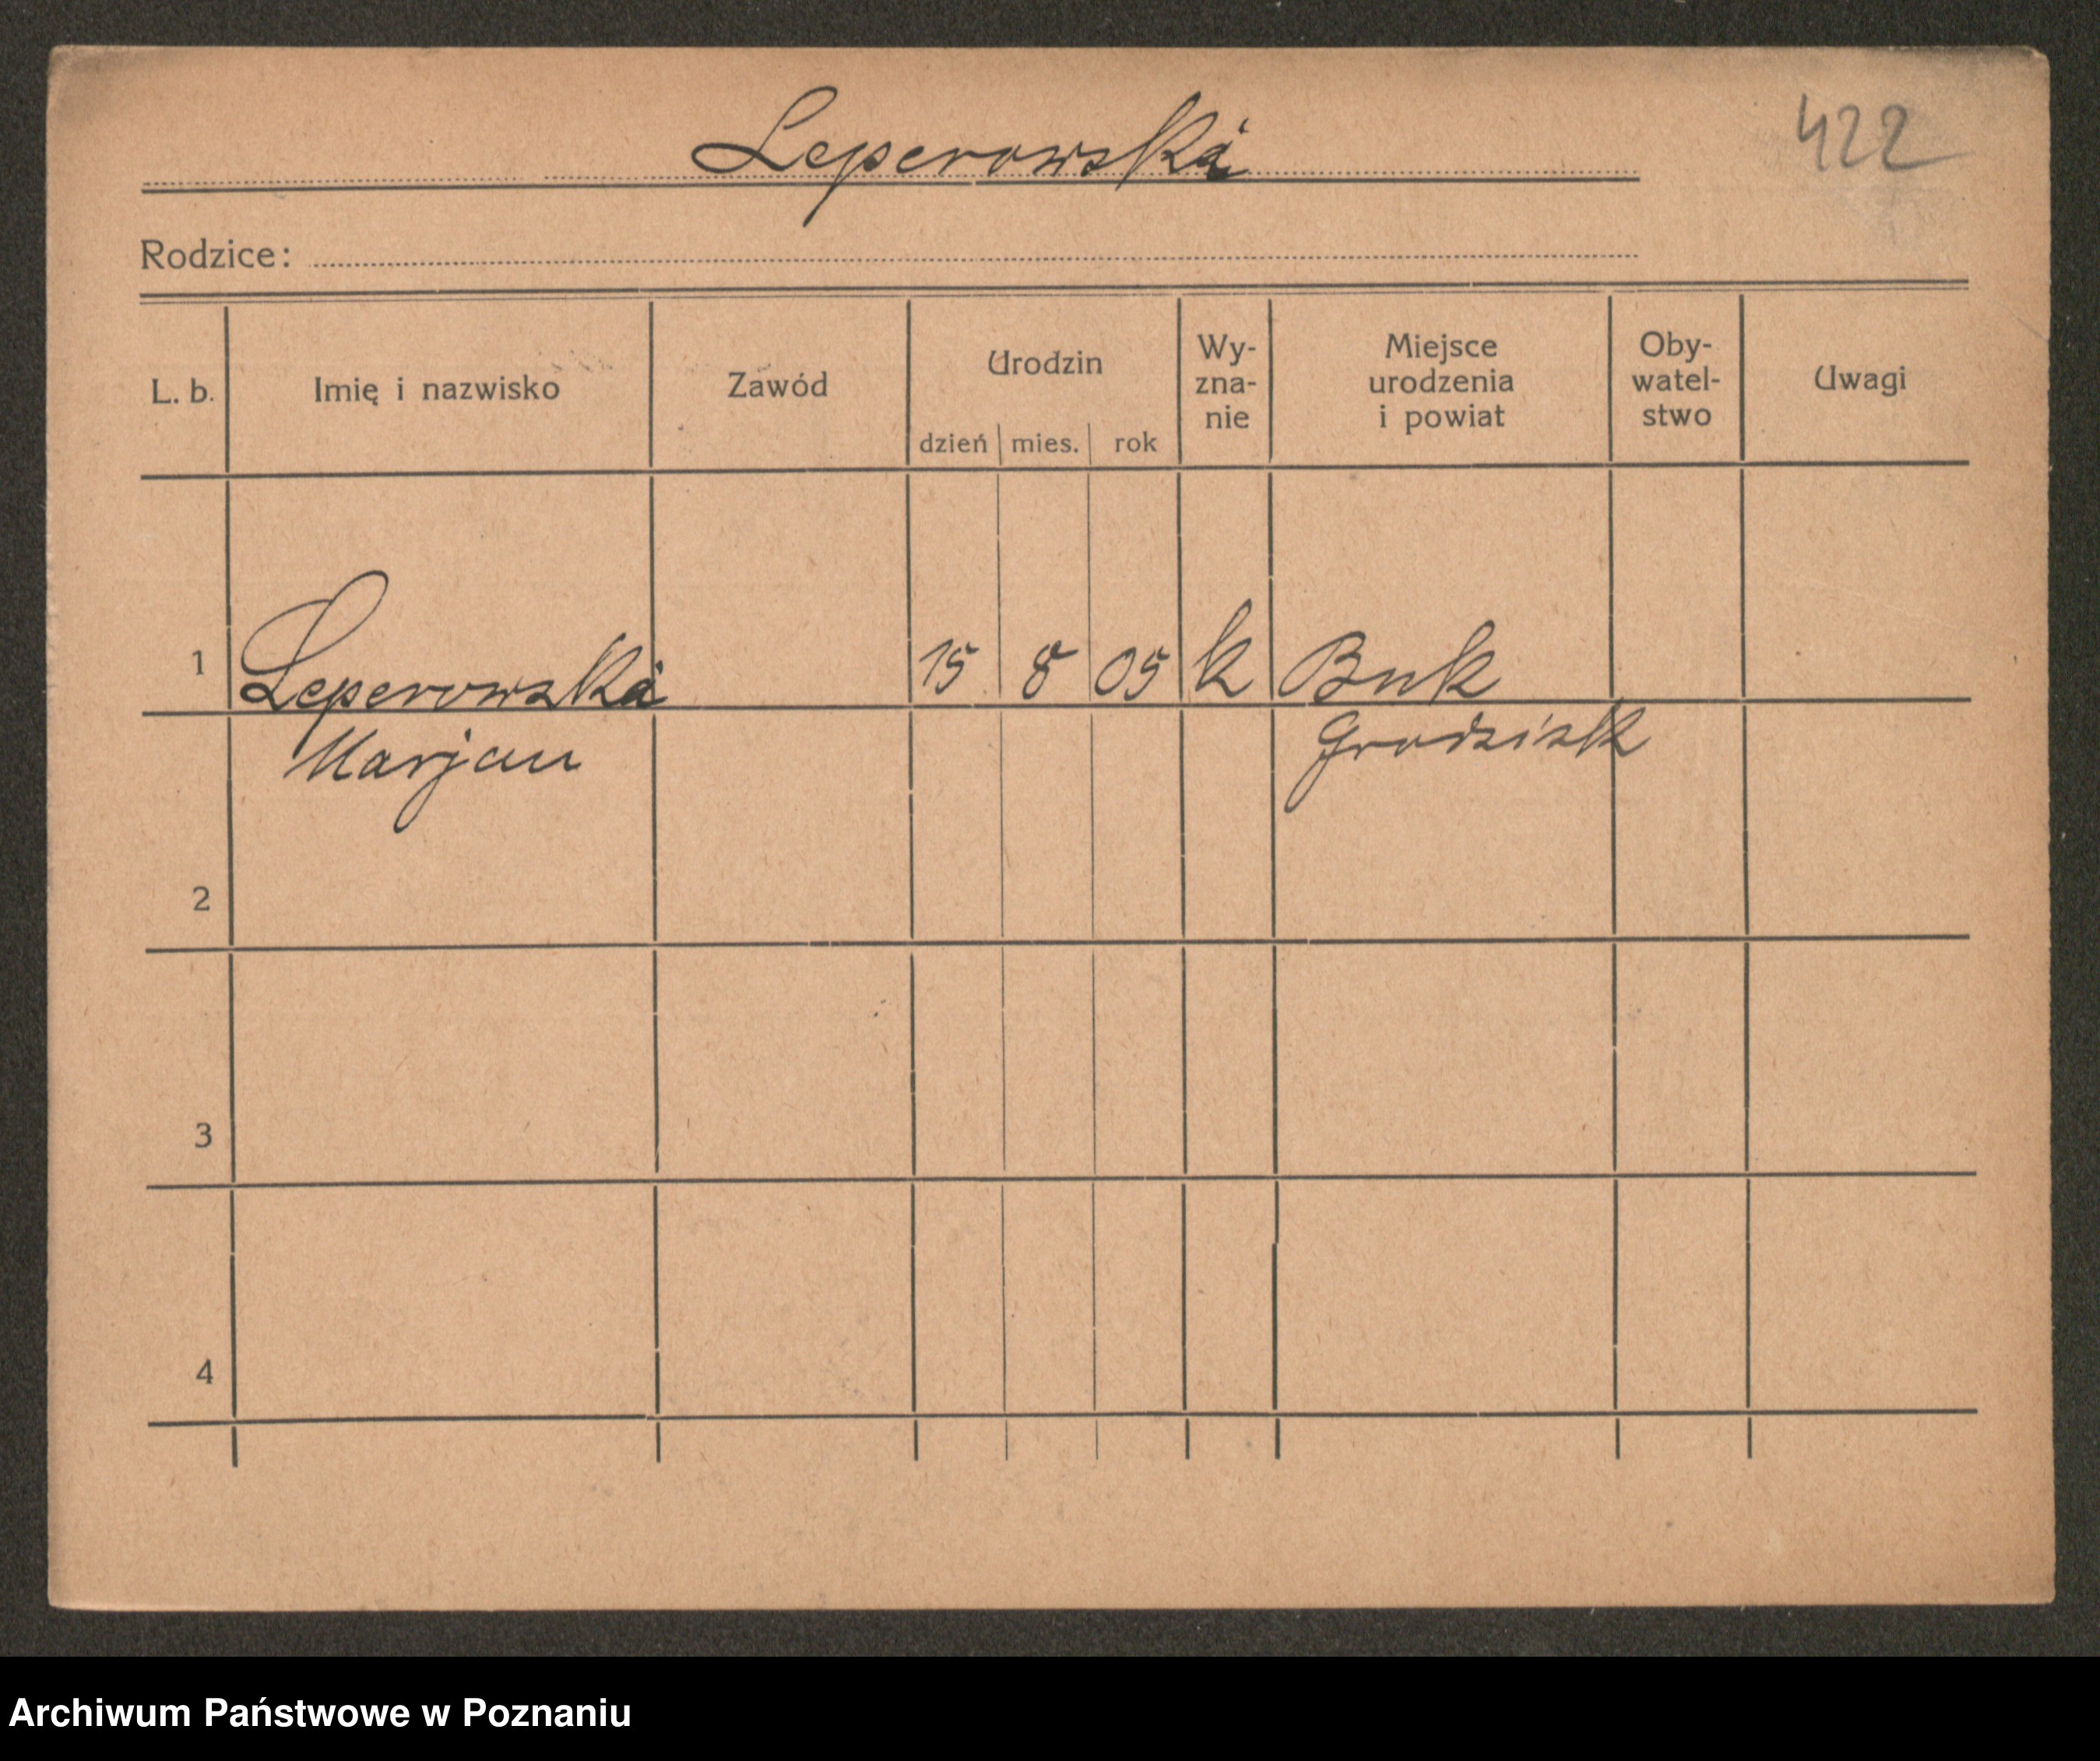 Leperowska
422
Rodzice:
L. b.
Imię i nazwisko
Zawód
Urodzin
dzień mies. rok
Wy-
zna-
nie
Miejsce
urodzenia
i powiat
Oby-
watel-
stwo
Uwagi
1 Leperowska 15 8 05 k Buk
Marjan Grodzisk
2
3
4
Archiwum Państwowe w Poznaniu